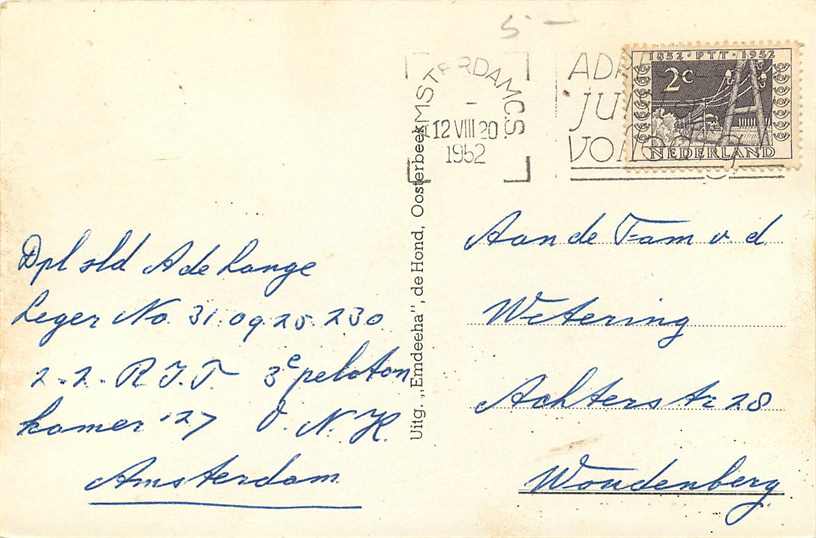 5.-
AMSTERDAM C.S.
12 VIII 20
1952
ADR
JU
VOL
1852 · PTT · 1952
2c
NEDERLAND
Dpl sld A de Lange
Leger No. 31.09.25.230
2-2- R.I.T. 3e peloton
kamer 27 O.N.K.
Amsterdam
Uitg. „Emdeeha", de Hond, Oosterbeek
Aan de Fam v d
Wetering
Achterstr 28
Woudenberg